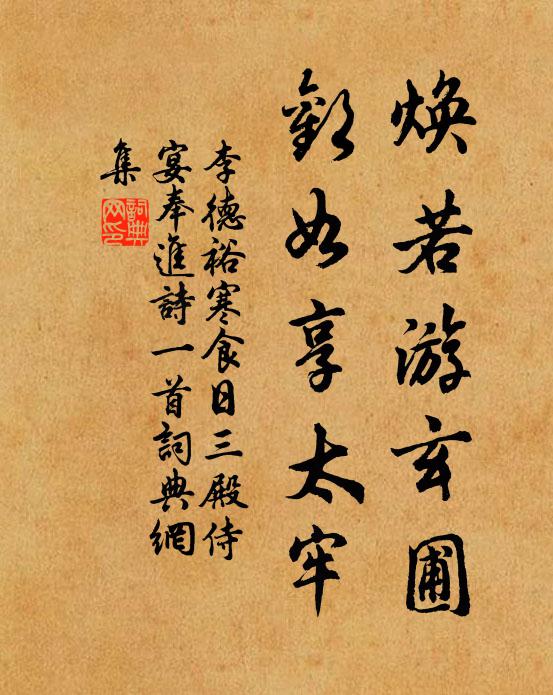 煥若游玄圃
歡如享太牢
李德裕寒食日三殿侍
宴奉進詩一首詞典網
集
詞典
网印